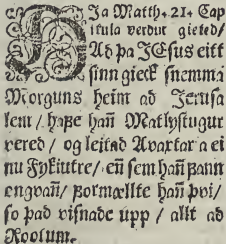 JA Matth. 21. Cap
itula verdur gieted/
Ad þa JEsus eitt
sinn gieck snemma
Morguns heim ad Jerusa
lem / hafe hañ Matlystugur
vered / og leitad Avaxtar a ei
nu Fykiutre/ eñ sem hañ fann
engvañ/ formællte hañ þvi/
so þad visnade upp / allt ad
Rootum.